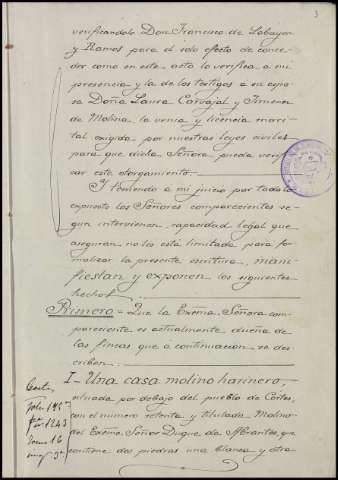 3
verificándolo Don Francisco de Labayen
y Ramos para el solo efecto de conce-
der como en este acto la verifica a mi
presencia y la de los testigos a su espo-
sa Doña Laura Carvajal y Jimenez
de Molina, la venia y licencia mari-
tal exigida por nuestras leyes civiles
para que dicha Señora pueda verifi-
car este otorgamiento.
Y teniendo a mi juicio por todo lo
expuesto los Señores comparecientes se-
gun intervienen, capacidad legal que
aseguran no les esta limitada para for-
malizar la presente escritura, mani-
fiestan y exponen los siguientes
hechos.
Primero = Que la Excma Señora com-
pareciente es actualmente dueña de
las fincas que á continuacion se des-
criben.
I - Una casa molino harinero,
situada por debajo del pueblo de Cortes,
con el numero setenta y titulada Molino
del Excmo Señor Duque de Abrantes, que
contiene dos piedras una blanca y otra
Cortes
1243
Tomo 16